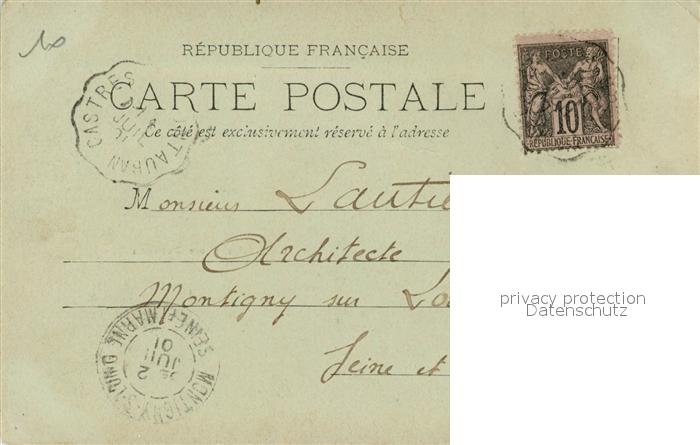 10
RÉPUBLIQUE FRANÇAISE
CARTE POSTALE
Ce côté est exclusivement réservé à l'adresse
POSTE
10
RÉPUBLIQUE FRANÇAISE
CASTRES
JUIL
01
Monsieur Lautie
Architecte
Montigny sur Lo
Seine et
MONTIGNY-S-LOING
2E
2
JUIL
01
SEINE-ET-MARNE
privacy protection
Datenschutz